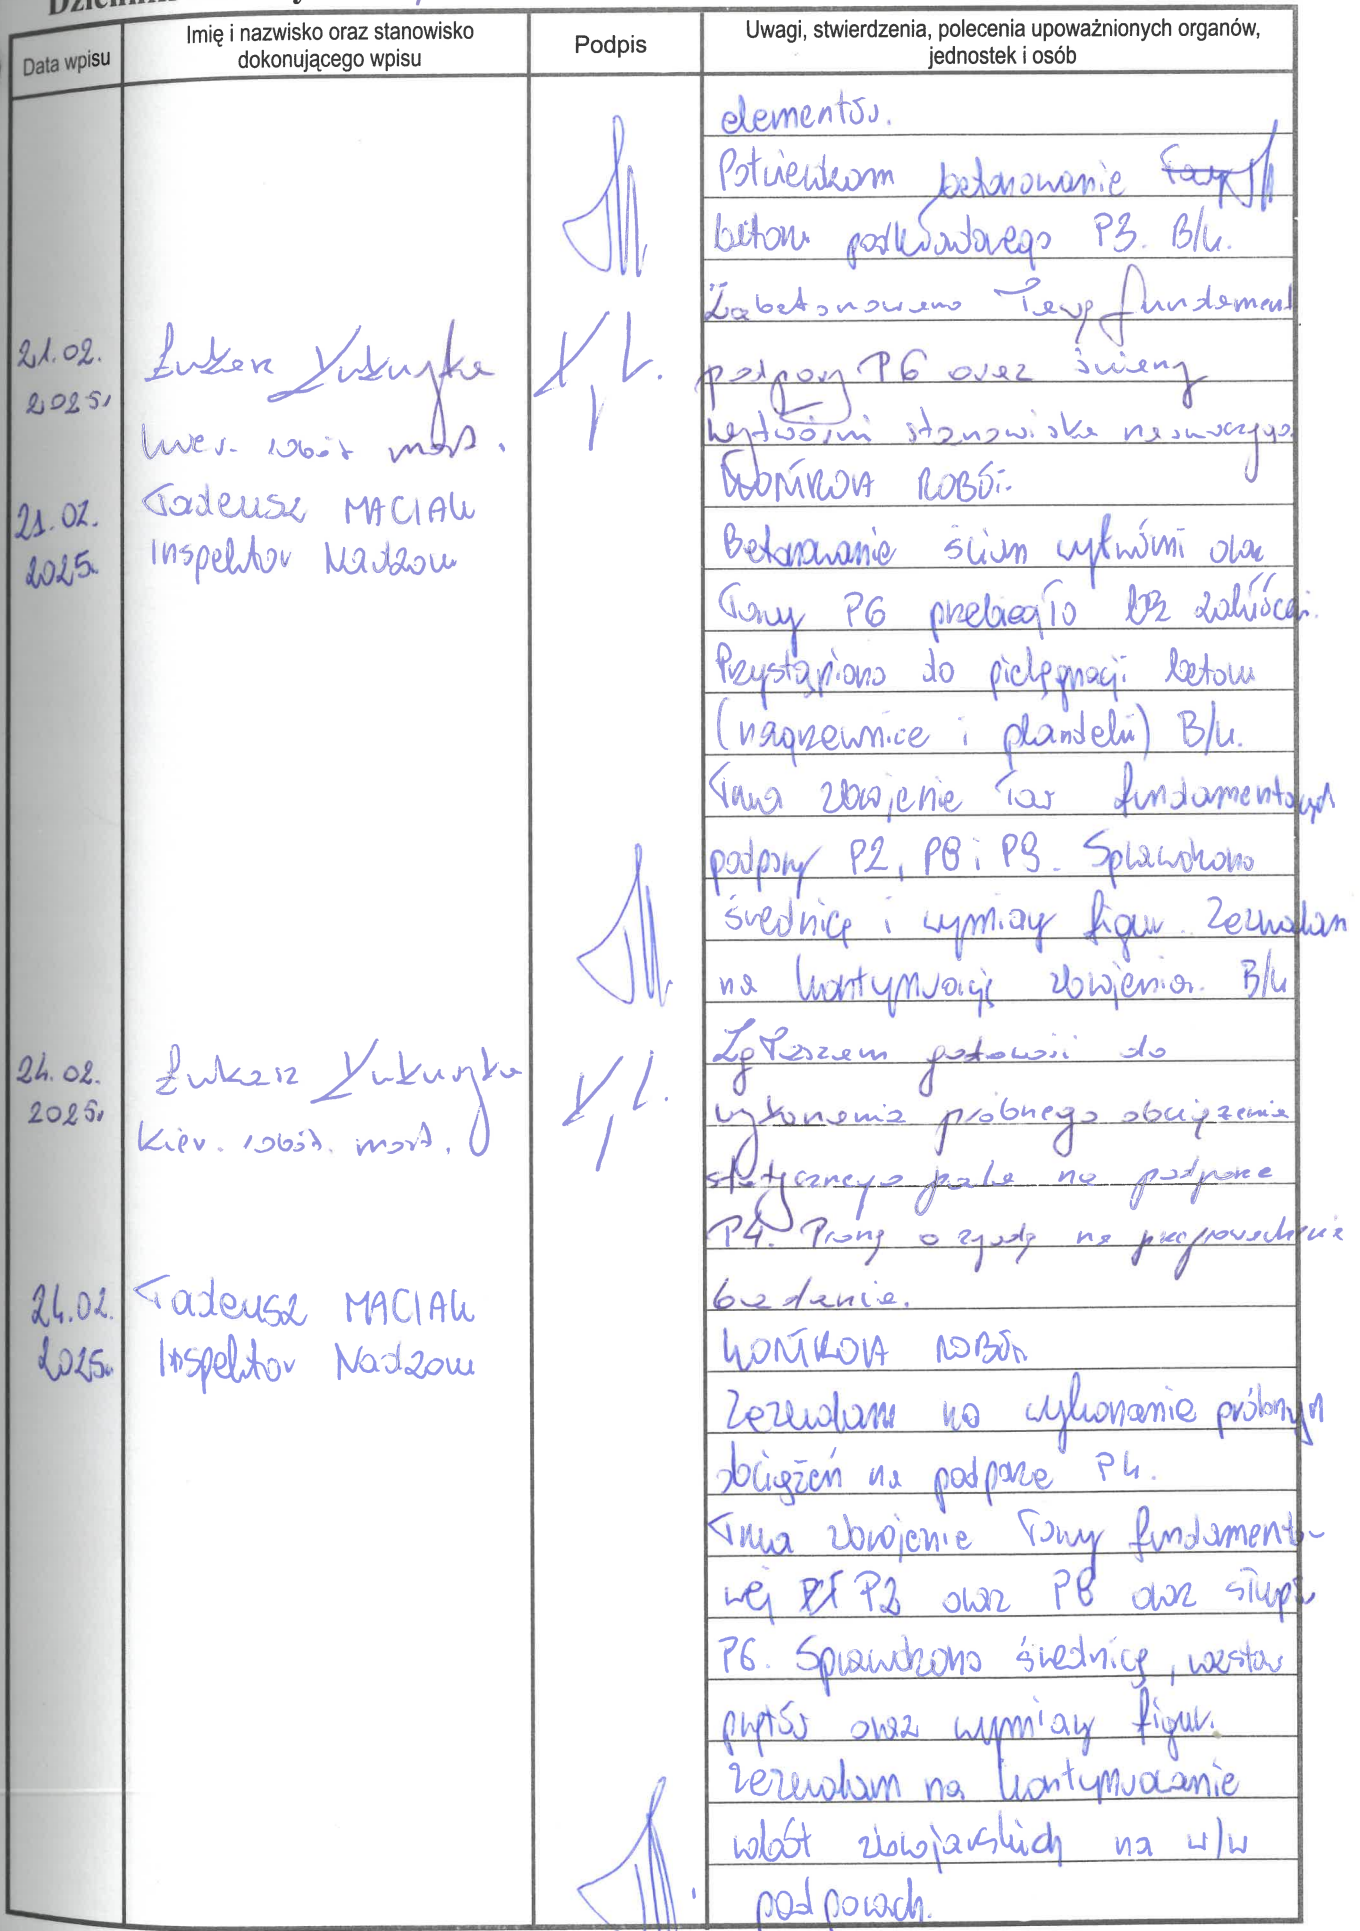 Data wpisu
Imię i nazwisko oraz stanowisko
dokonującego wpisu
Podpis
Uwagi, stwierdzenia, polecenia upoważnionych organów,
jednostek i osób
elementów.
Potwierdzam betonowanie
betonu podkładowego P3. B/u.
21.02.
2025r
Łukasz
kier. robót most.
Zabetonowano ławę fundament
podpory P6 oraz ściany
wytwórni stanowiska nasuwczego.
21.02.
2025r.
Tadeusz MACIAK
Inspektor Nadzoru
KONTROLA ROBÓT.
Betonowanie ścian wytwórni oraz
ławy P6 przebiegło bez zakłóceń.
Przystąpiono do pielęgnacji betonu
(nagrzewnice i plandeki) B/u.
Trwa zbrojenie ław fundamentowych
podpory P2, P8 i P9. Sprawdzono
średnicę i wymiary figur. Zezwalam
na kontynuację zbrojenia. B/u
24.02.
2025r
Łukasz
kier. robót. most.
Zgłaszam gotowość do
wykonania próbnego obciążenia
statycznego pala na podporze
P4. Proszę o zgodę na przeprowadzenie
badania.
24.02.
2025r.
Tadeusz MACIAK
Inspektor Nadzoru
KONTROLA ROBÓT.
Zezwalam na wykonanie próbnych
obciążeń na podporze P4.
Trwa zbrojenie ławy fundamento-
wej P2 oraz P8 oraz słupów
P6. Sprawdzono średnicę, rozstaw
prętów oraz wymiary figur.
Zezwalam na kontynuowanie
robót zbrojarskich na w/w
podporach.